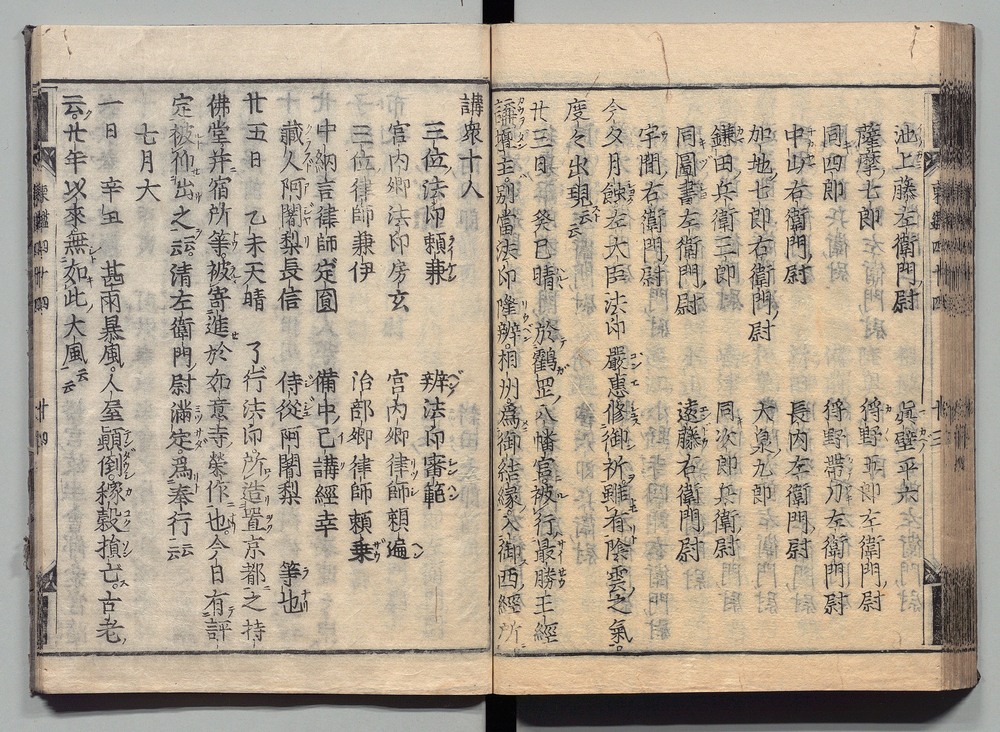 池上藤左衛門尉　眞壁平六
薩摩七郎　狩野五郎左衛門尉
同四郎　狩野帶刀左衛門尉
中山右衛門尉　長内左衛門尉
加地七郎右衛門尉　大泉九郎
鎌田兵衛三郎　同次郎兵衛尉
同圖書左衛門尉　遠藤右衛門尉
宇間右衛門尉
今夕月蝕左大臣法印嚴惠修御祈雖有陰雲之氣
度々出現云云
廿三日　癸巳晴　於鶴岡八幡宮被行最勝王經
講壇主別當法印隆辨相州為御結緣入御西經所
講衆十人
三位法印頼兼　辨法印審範
宮内卿法印房玄　宮内卿律師頼遍
三位律師兼伊　治部卿律師頼乗
中納言律師定圓　備中已講經幸
蔵人阿闍梨長信　侍從阿闍梨　等也
廿五日　乙未天晴　了行法印所造置京都之持
佛堂并宿所等被寄進於如意寺榮作也今日有評
定被仰出之云云清左衛門尉滿定為奉行云云
七月大
一日　辛丑　甚雨暴風人屋顛倒稼穀損亡古老
云廿年以來無如此大風云云
東鑑四十四　十三
東鑑四十四　廿四